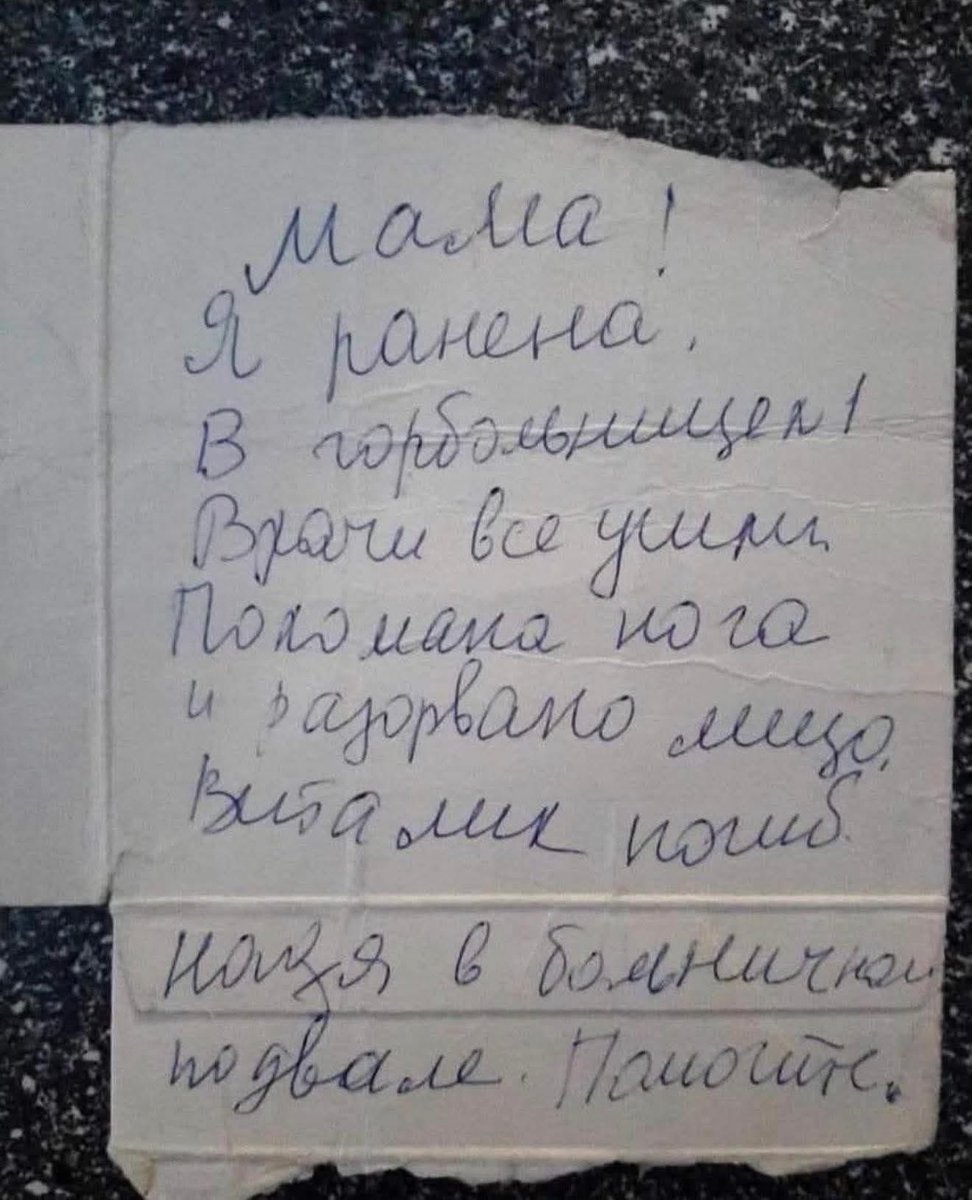 Мама!
Я ранена.
В горбольнице 1
Врачи все ушли
Поломана нога
и разорвано лицо,
Виталик погиб.
Надя в больничном
подвале. Помогите.